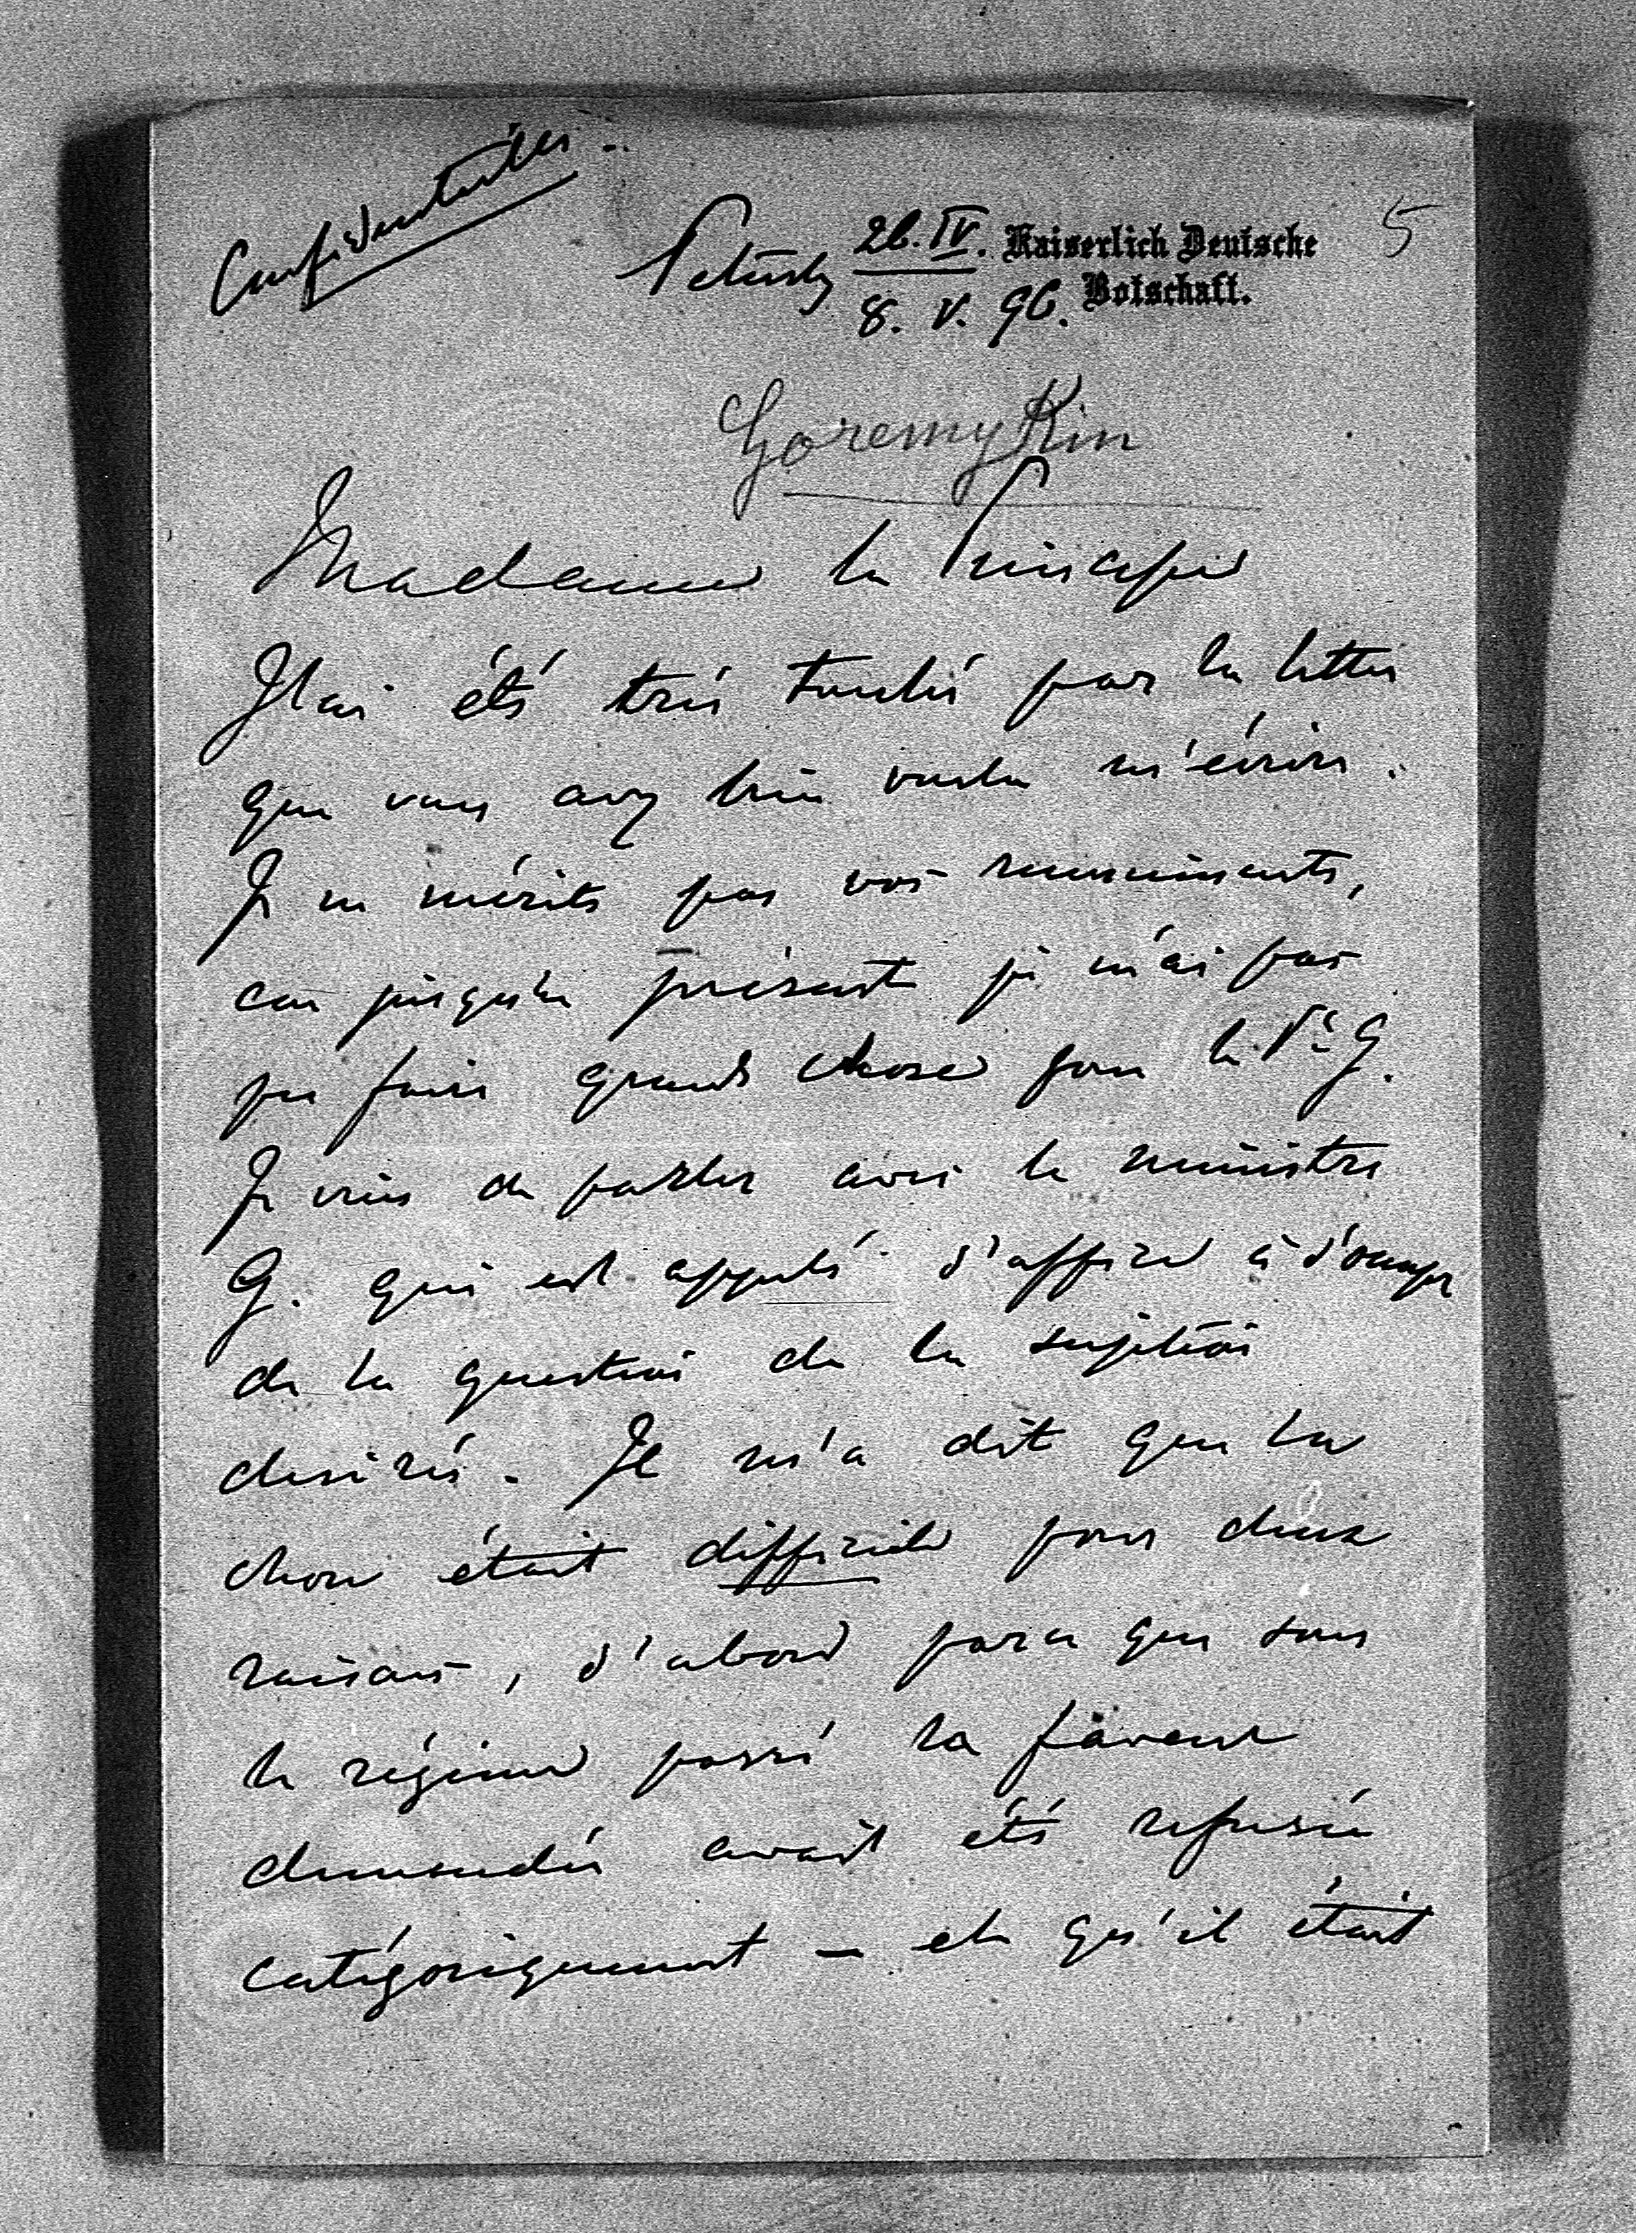 Confidentielle.
5
Petersbg 26.IV. Kaiserlich Deutsche
8. V. 96. Botschaft.
Goremykin
Madame la Princesse
J'ai été très touché par la lettre
que vous avez bien voulu m'écrire.
Je ne mérite pas vos remerciments,
car jusqu'à présent je n'ai pas
pu faire grande chose pour le Pce G.
Je viens de parler avec le ministre
G. qui est appelé d'office à s'occuper
de la question de la sujétion
desirée. Il m'a dit que la
chose était difficile pour deux
raisons, d'abord parce que sous
le régime passé la faveur
demandée avait été refusée
catégoriquement — et qu'il était